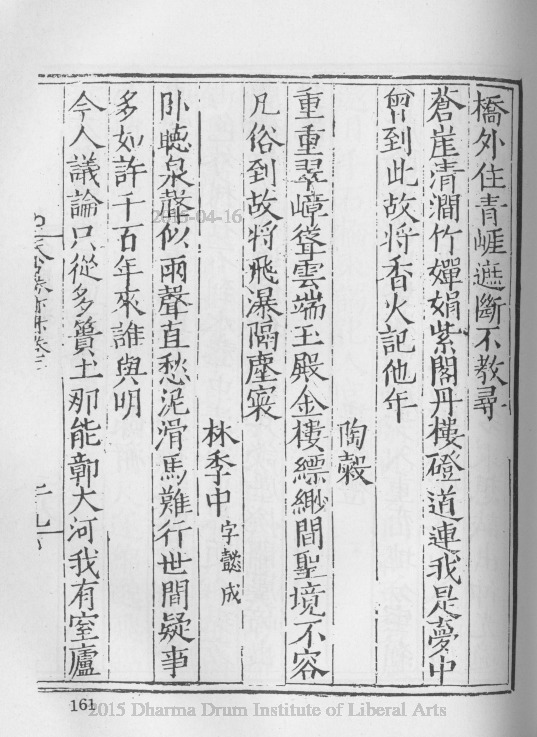 橋外住青崕遮斷不教尋
蒼崖清澗竹嬋娟紫閣丹樓磴道連我是夢中
曾到此故将香火記他年
陶穀
重重翠嶂聳雲端玉殿金樓縹緲間聖境不容
凡俗到故将飛瀑隔塵寰
林季中字懿成
卧聴泉聲似雨聲直愁泥滑馬難行世間疑事
多如許千百年來誰與明
今人議論只從多簣土那能鄣大河我有室廬
2015-04-16
161
2015 Dharma Drum Institute of Liberal Arts